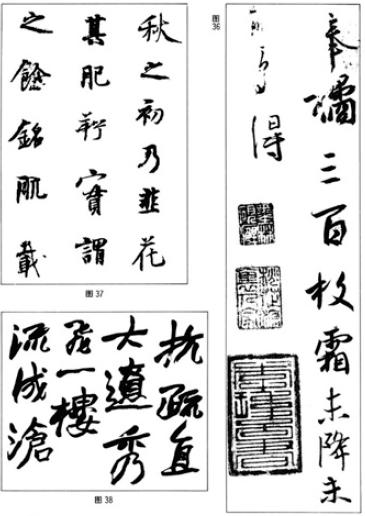 秋之初乃韭花
其肥羜實謂
之餘銘肌載
图37
图36
奉橘三百枚霜未降未
得
抗疏直
大遺秀
一樓
流成滄
图38